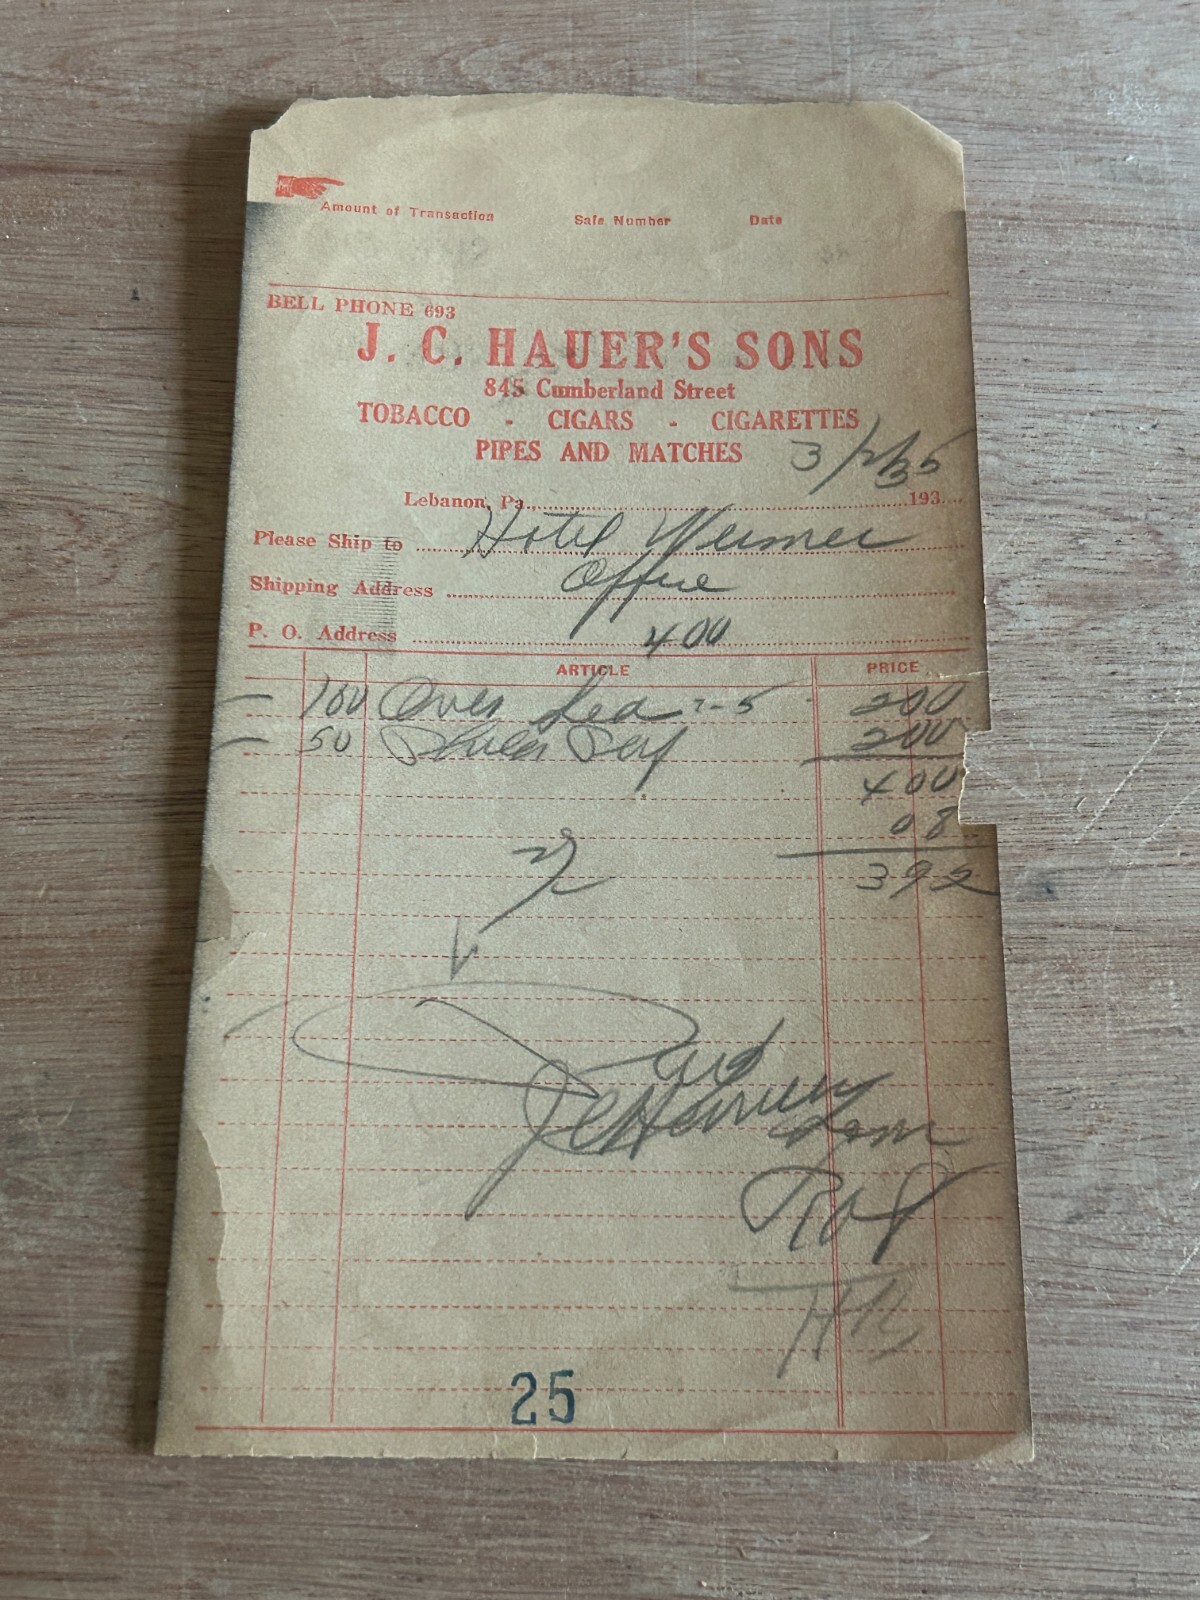 Amount of Transaction Sale Number Date
BELL PHONE 693
J. C. HAUER'S SONS
845 Cumberland Street
TOBACCO - CIGARS - CIGARETTES
PIPES AND MATCHES
Lebanon, Pa., 193
Please Ship to Hotel Weimer
Shipping Address Office
P. O. Address 400
ARTICLE PRICE
100 Over 2-5 200
50 200
400
08
392
Paid
25